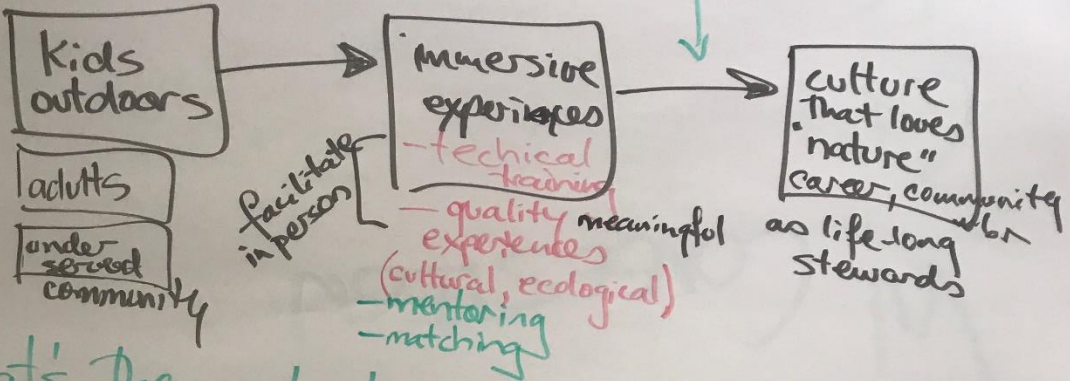 Kids
outdoors
adults
under
served
community
immersive
experinces
-techical
training
facilitate
in person
- quality meaningful
experiences
(cultural, ecological)
-mentoring
-matching
culture
that loves
"nature"
career, community
as life-long
stewards